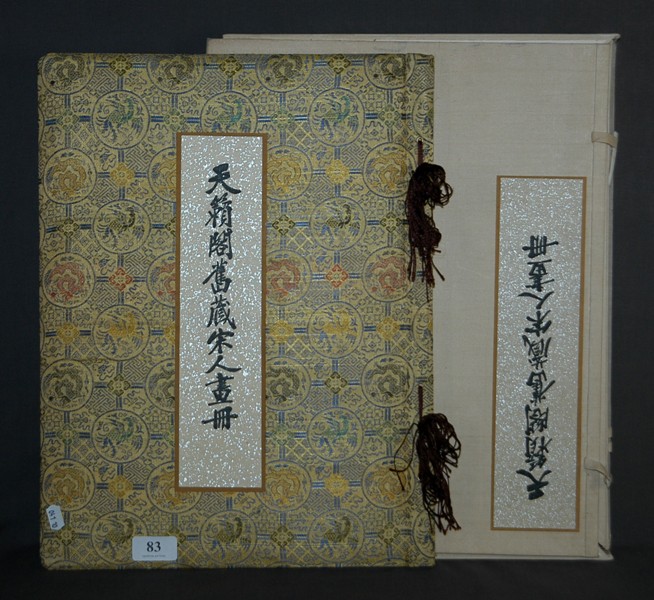 天籟閣舊藏宋人畫冊
83
天籟閣舊藏宋人畫冊